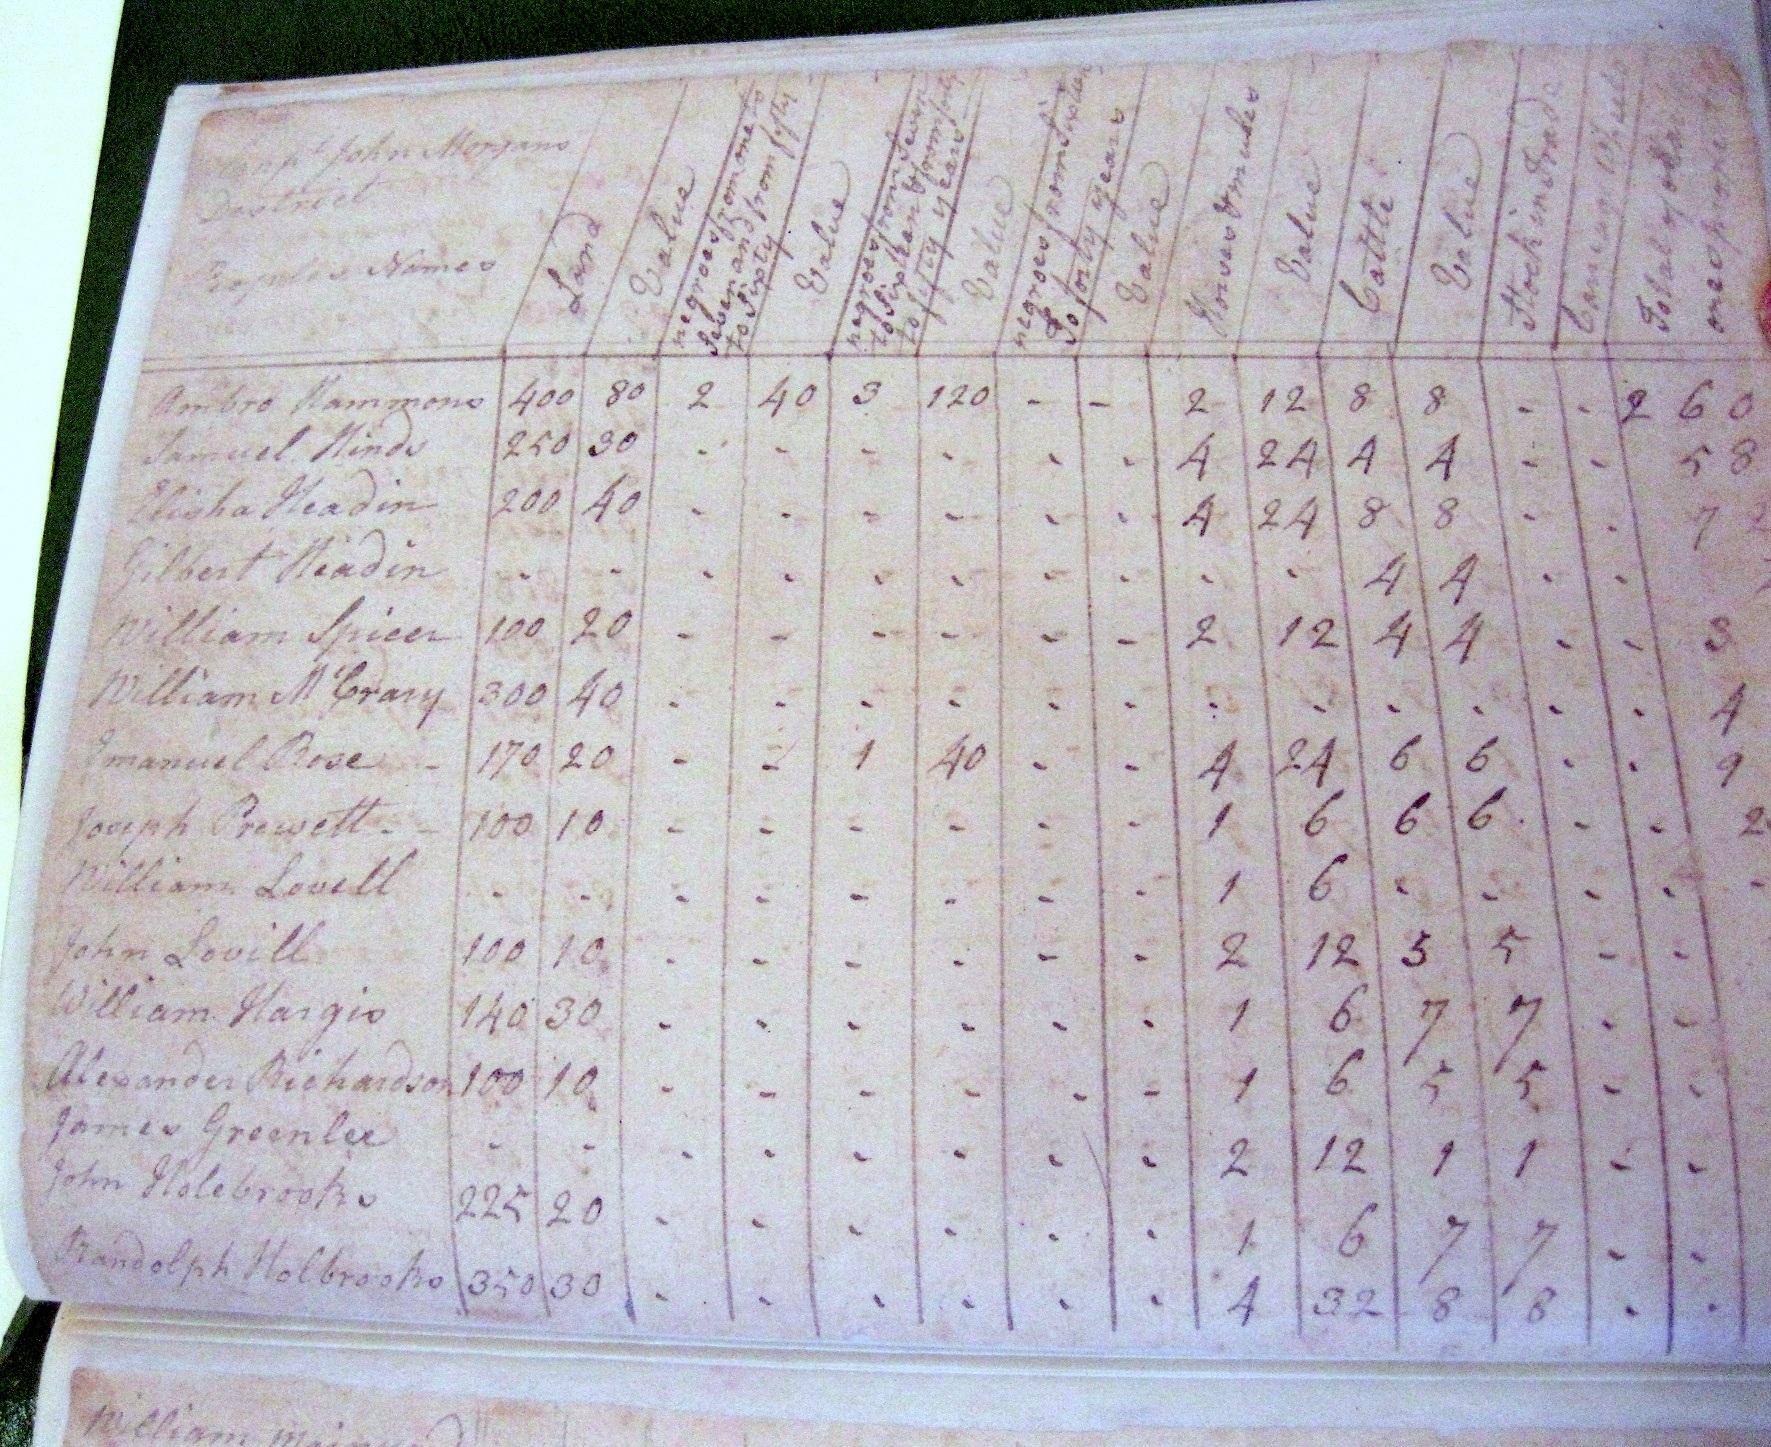 Capt John Morgans
District
Peoples Names
Land
Value
negroes from one to
Seven and from fifty
to Sixty
Value
negroes from Seven
to Sixteen & from forty
to fifty years
Value
negroes from Sixteen
to forty years
Value
Horses & mules
Value
Cattle
Value
Stock in Trade
Carriag Wheels
Total
Ambro Hammons 400 80 2 40 3 120 - - 2 12 8 8 - - 2 6 0
Samuel Hinds 250 30 - - - - - - 4 24 4 4 - - 5 8
Elisha Headin 200 40 - - - - - - 4 24 8 8 - - 7 2
Gilbert Headin - - - - - - - - - - 4 4 - -
William Spicer 100 20 - - - - - - 2 12 4 4 - - 3
William McCrary 300 40 - - - - - - - - - - - - 4
Imanuel Rose - 170 20 - - 1 40 - - 4 24 6 6 - - 9
Joseph Prewett - - 100 10 - - - - - - 1 6 6 6 - - 2
William Lovell - - - - - - - - 1 6 - - - - -
John Lovill 100 10 - - - - - - 2 12 5 5 - -
William Hargis 140 30 - - - - - - 1 6 7 7 - -
Alexander Richardson 100 10 - - - - - - 1 6 5 5 - -
James Greenlee - - - - - - - - 2 12 1 1 - -
John Holebrooks 225 20 - - - - - - 1 6 7 7 - -
Randolph Holbrooks 350 30 - - - - - - 4 32 8 8 - -
William